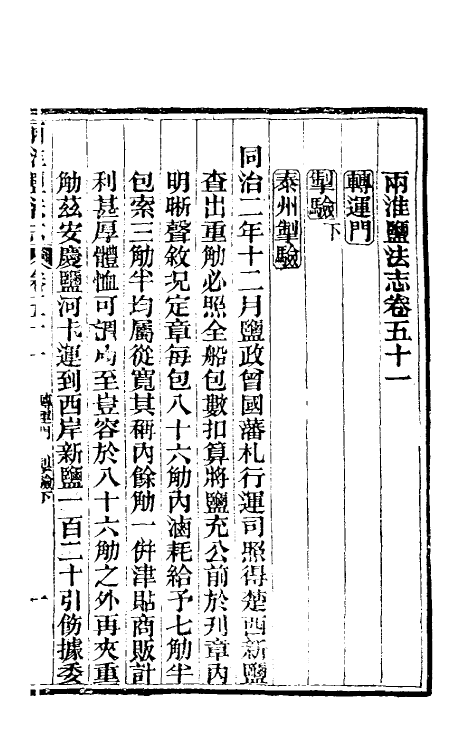 兩淮鹽法志卷五十一
轉運門
掣驗下
泰州掣驗
同治二年十二月鹽政曾國藩札行運司照得楚西新鹽
查出重觔必照全船包數扣算將鹽充公前於刋章內
明晰聲敘況定章每包八十六觔內滷耗給予七觔半
包索三觔半均屬從寬其稱內餘觔一併津貼商販計
利甚厚體恤可謂尚至豈容於八十六觔之外再夾重
觔茲安慶鹽河卡運到西岸新鹽一百二十引飭據委
轉運門 掣驗下
一